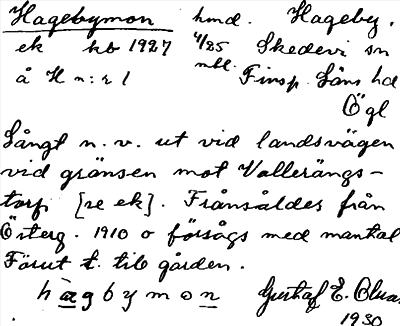 Hagebymon hmd. Hageby.
ek hb 1927 4/25 Skedevi sn
å H n:r 1 mbl. Finsp. Läns hd
Ögl
Långt n. v. ut vid landsvägen
vid gränsen mot Vallerängs-
torp [se ek]. Frånsåldes från
Österg. 1910 o försågs med mantal
Förut t. till gården.
hàgbymon Gustaf E.
1930